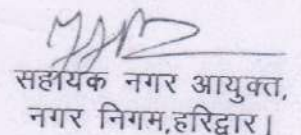 सहायक नगर आयुक्त,
नगर निगम,हरिद्वार।